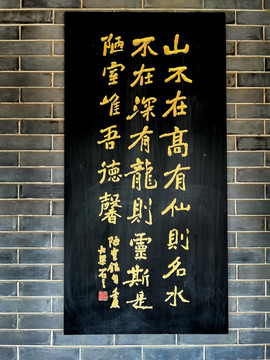 山不在高有仙則名水
不在深有龍則靈斯是
陋室惟吾德馨
陋室銘句